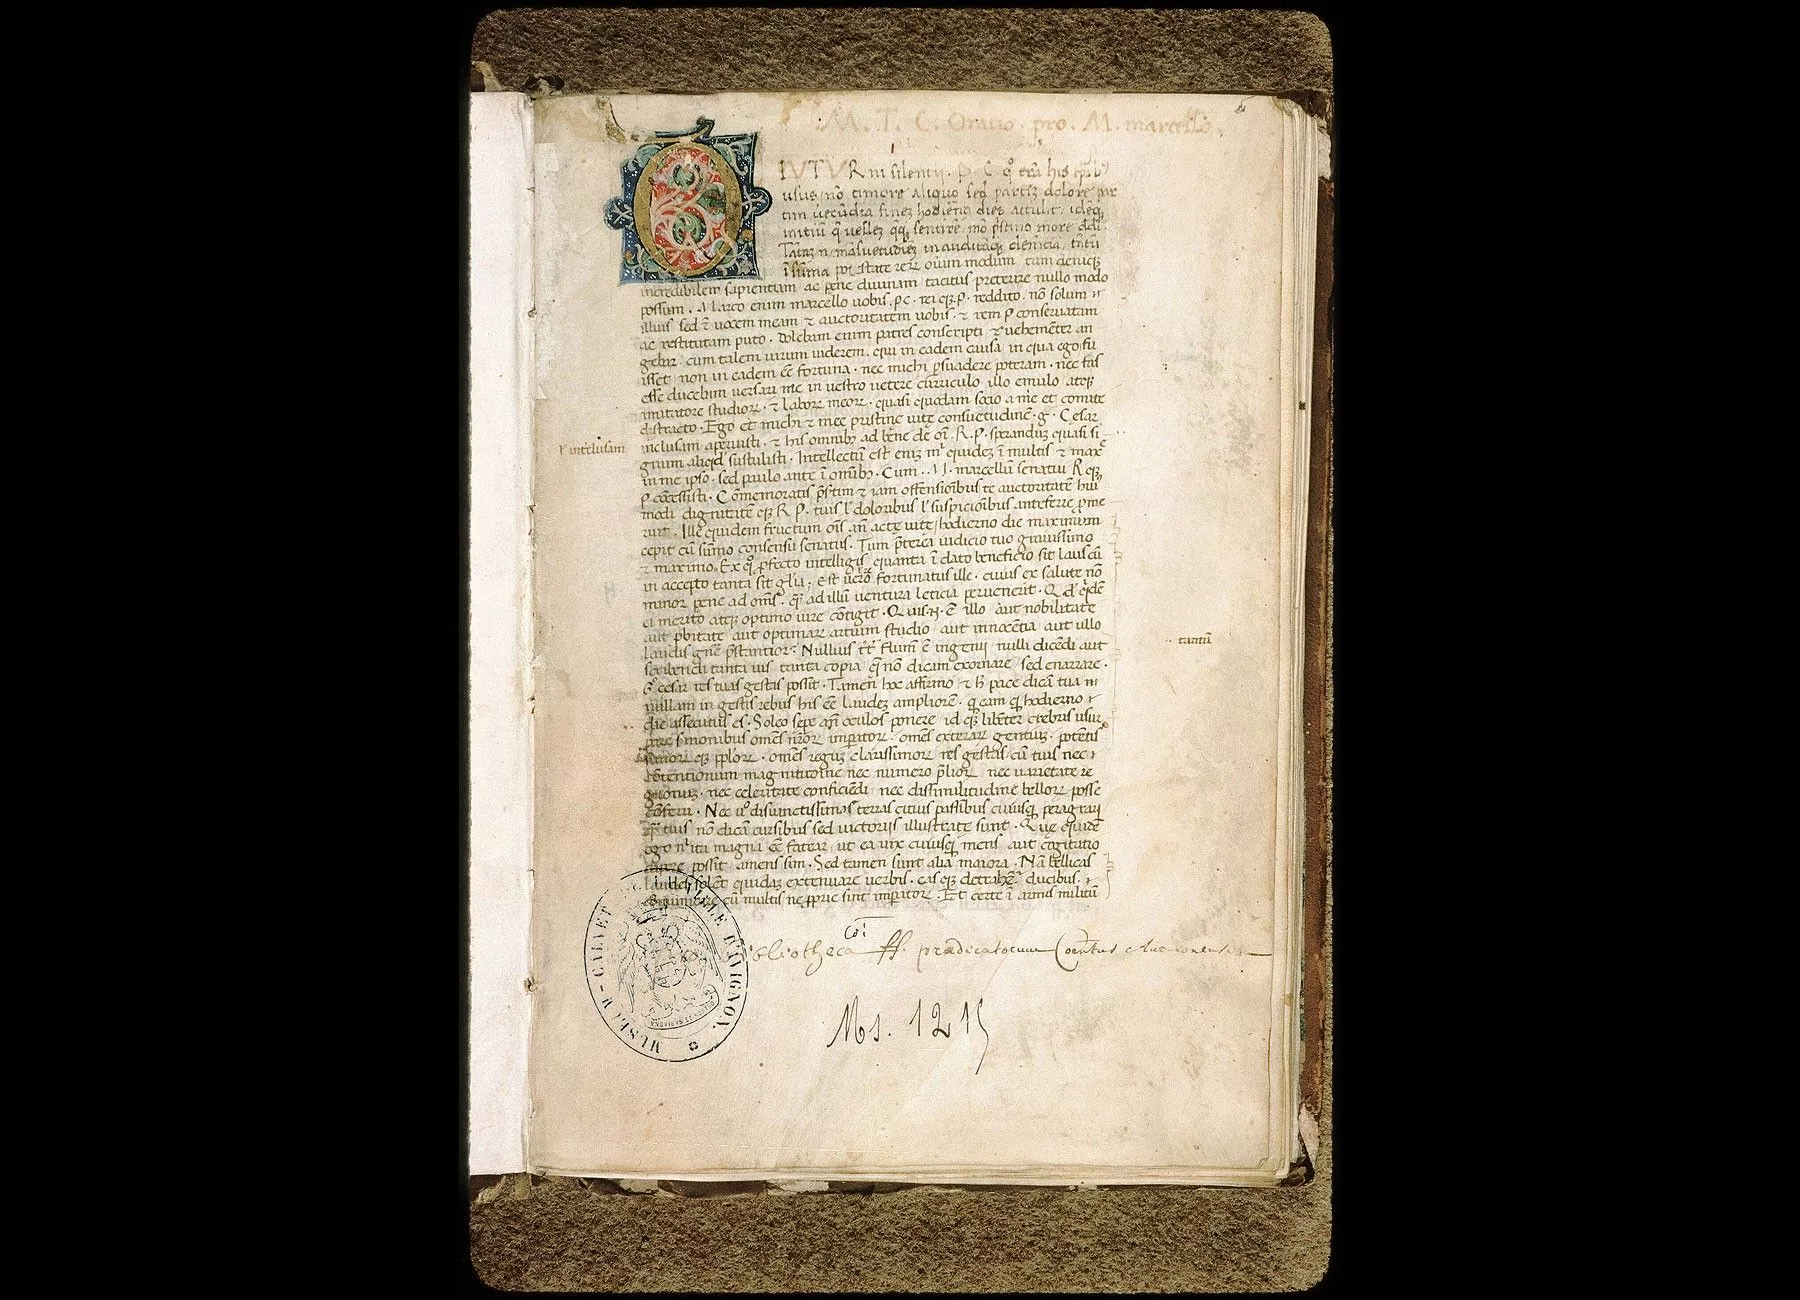 M. T. C. Oratio. pro. M. marcello.
DIUTURni silentij. P. C. qͦ erā his
usus nō timore aliquo sed partiʒ dolore par
tim uecūdia fineʒ hodiern' dies attulit. idēqʒ
initiū q̄ uelleʒ q̄qʒ sentirē. mō pͥstino more dicēdi.
Tātaʒ n̄ māsuetudineʒ inauditāqʒ clemēcia, tātū
ī sūma potestate rerꝝ oīum modum. tam deniqʒ
incredibilem sapientiam ac pene diuinam tacitus preterire nullo modo
possum. Marco enim marcello uobis. P C. rei qʒ. P. reddito. nō solum
illius sed ⁊ uocem meam ⁊ auctoritatem uobis. ⁊ rem P conseruatam
ac restitutam puto. Dolebam enim patres conscripti ⁊ uehemēter an
gebar. cum talem uirum uiderem. qui in eadem causa in qua ego fu
isset non in eadem eē fortuna. nec michi ꝑsuadere poteram. nec fas
esse ducebam uersari me in uestro uetere curriculo. illo emulo atqʒ
imitatore studioꝝ. ⁊ laboꝝ meoꝝ. quasi quodam socio a me et comite
distracto. Ego et michi ⁊ mee pristine uite consuetudinē. g. Cesar
inclusam aperuisti. ⁊ his omnibʒ ad bēne de oī. R. P. sperandūʒ quasi si
l' interclusam
gnum aliqid sustulisti. Intellectū est eniʒ mͥ quideʒ ī multis ⁊ max
in me ipso. sed paulo ante ī omībʒ. Cum. M. marcellū senatui R qʒ
P cōcessisti. Cōmemoratis pͥstim ⁊ iam offensionibus te auctoritatē huiͥ
modi dignitatēqʒ R P. tuis l' doloribus l' suspicionibus anteferre
Ille quidem fructum oīs an̄ acte uite hodierno die maximum
cepit cū sūmo consensu senatus. Tum p̄terea iudicio tuo grauissimo
⁊ maximo. Ex qͦ ꝓfecto intelligis quanta ī dato beneficio sit laus cū
in accepto tanta sit gl̄ia. Est uero fortunatus ille. cuius ex salute nō
minor pene ad om̄s. q̄ꝫ ad illū uentura leticia peruenerit. Qd' qidē
ei merito atqʒ optimo iure cōtigit. Quis. n. ē illo aut nobilitate
aut ꝓbitate aut optimaꝝ artium studio aut innocētia aut ullo
tantū
laudis gn̄e p̄stantior. Nullius flum ē ingenij nulli dicēdi aut
scribendi tanta uis tanta copia q̄ nō dicam exornare sed enarrare.
C. cesar res tuas gestas possit. Tamen hoc affirmo ⁊ h pace dicā tua
nullam in gestis rebus his eē laudeʒ ampliorē. q̄ eam q̄ hodierno
die assecutus es. Soleo sepe an̄ oculos ponere id qʒ libēter crebris usur
pare sermonibus omēs nr̄oꝝ imꝑatoꝝ. omēs exteraꝝ gentiuʒ. potētis
simoꝝ qʒ ppl'oꝝ. omēs reguʒ clarissimoꝝ res gestas cū tuis nec
cōtentionum magnitudine nec numero p̄lioꝝ nec uarietate re
gionuʒ. nec celeritate conficiēdi nec dissimilitudine belloꝝ posse
cōferri. Nec uͦ disiunctissimas terras citius passibus cuiusqʒ peragrari
q̄ tuis nō dicā cursibus sed uictorijs illustrate sunt. Que quidē
ego nͥ ita magna eē fatear. ut ea uix cuiusqʒ mens aut cogitatio
capere possit amens sim. Sed tamen sunt alia maiora. Nā bellicas
laudes solēt quidaʒ extenuare uerbis. eas qʒ detrahē ducibus
cōmunicare cū multis ne ꝓprie sint imꝑatoꝝ. Et certe ī armis militū
cōi
Bibliotheca ff. prædicatorum Conentus Auenionensis
Ms. 1215
MUSEUM - CALVET VILLE D'AVIGNON